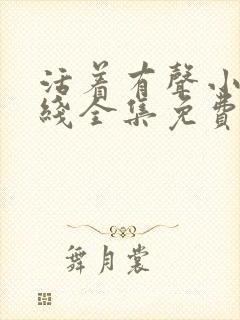 活着有聲小
綫全集免費
舞月裳